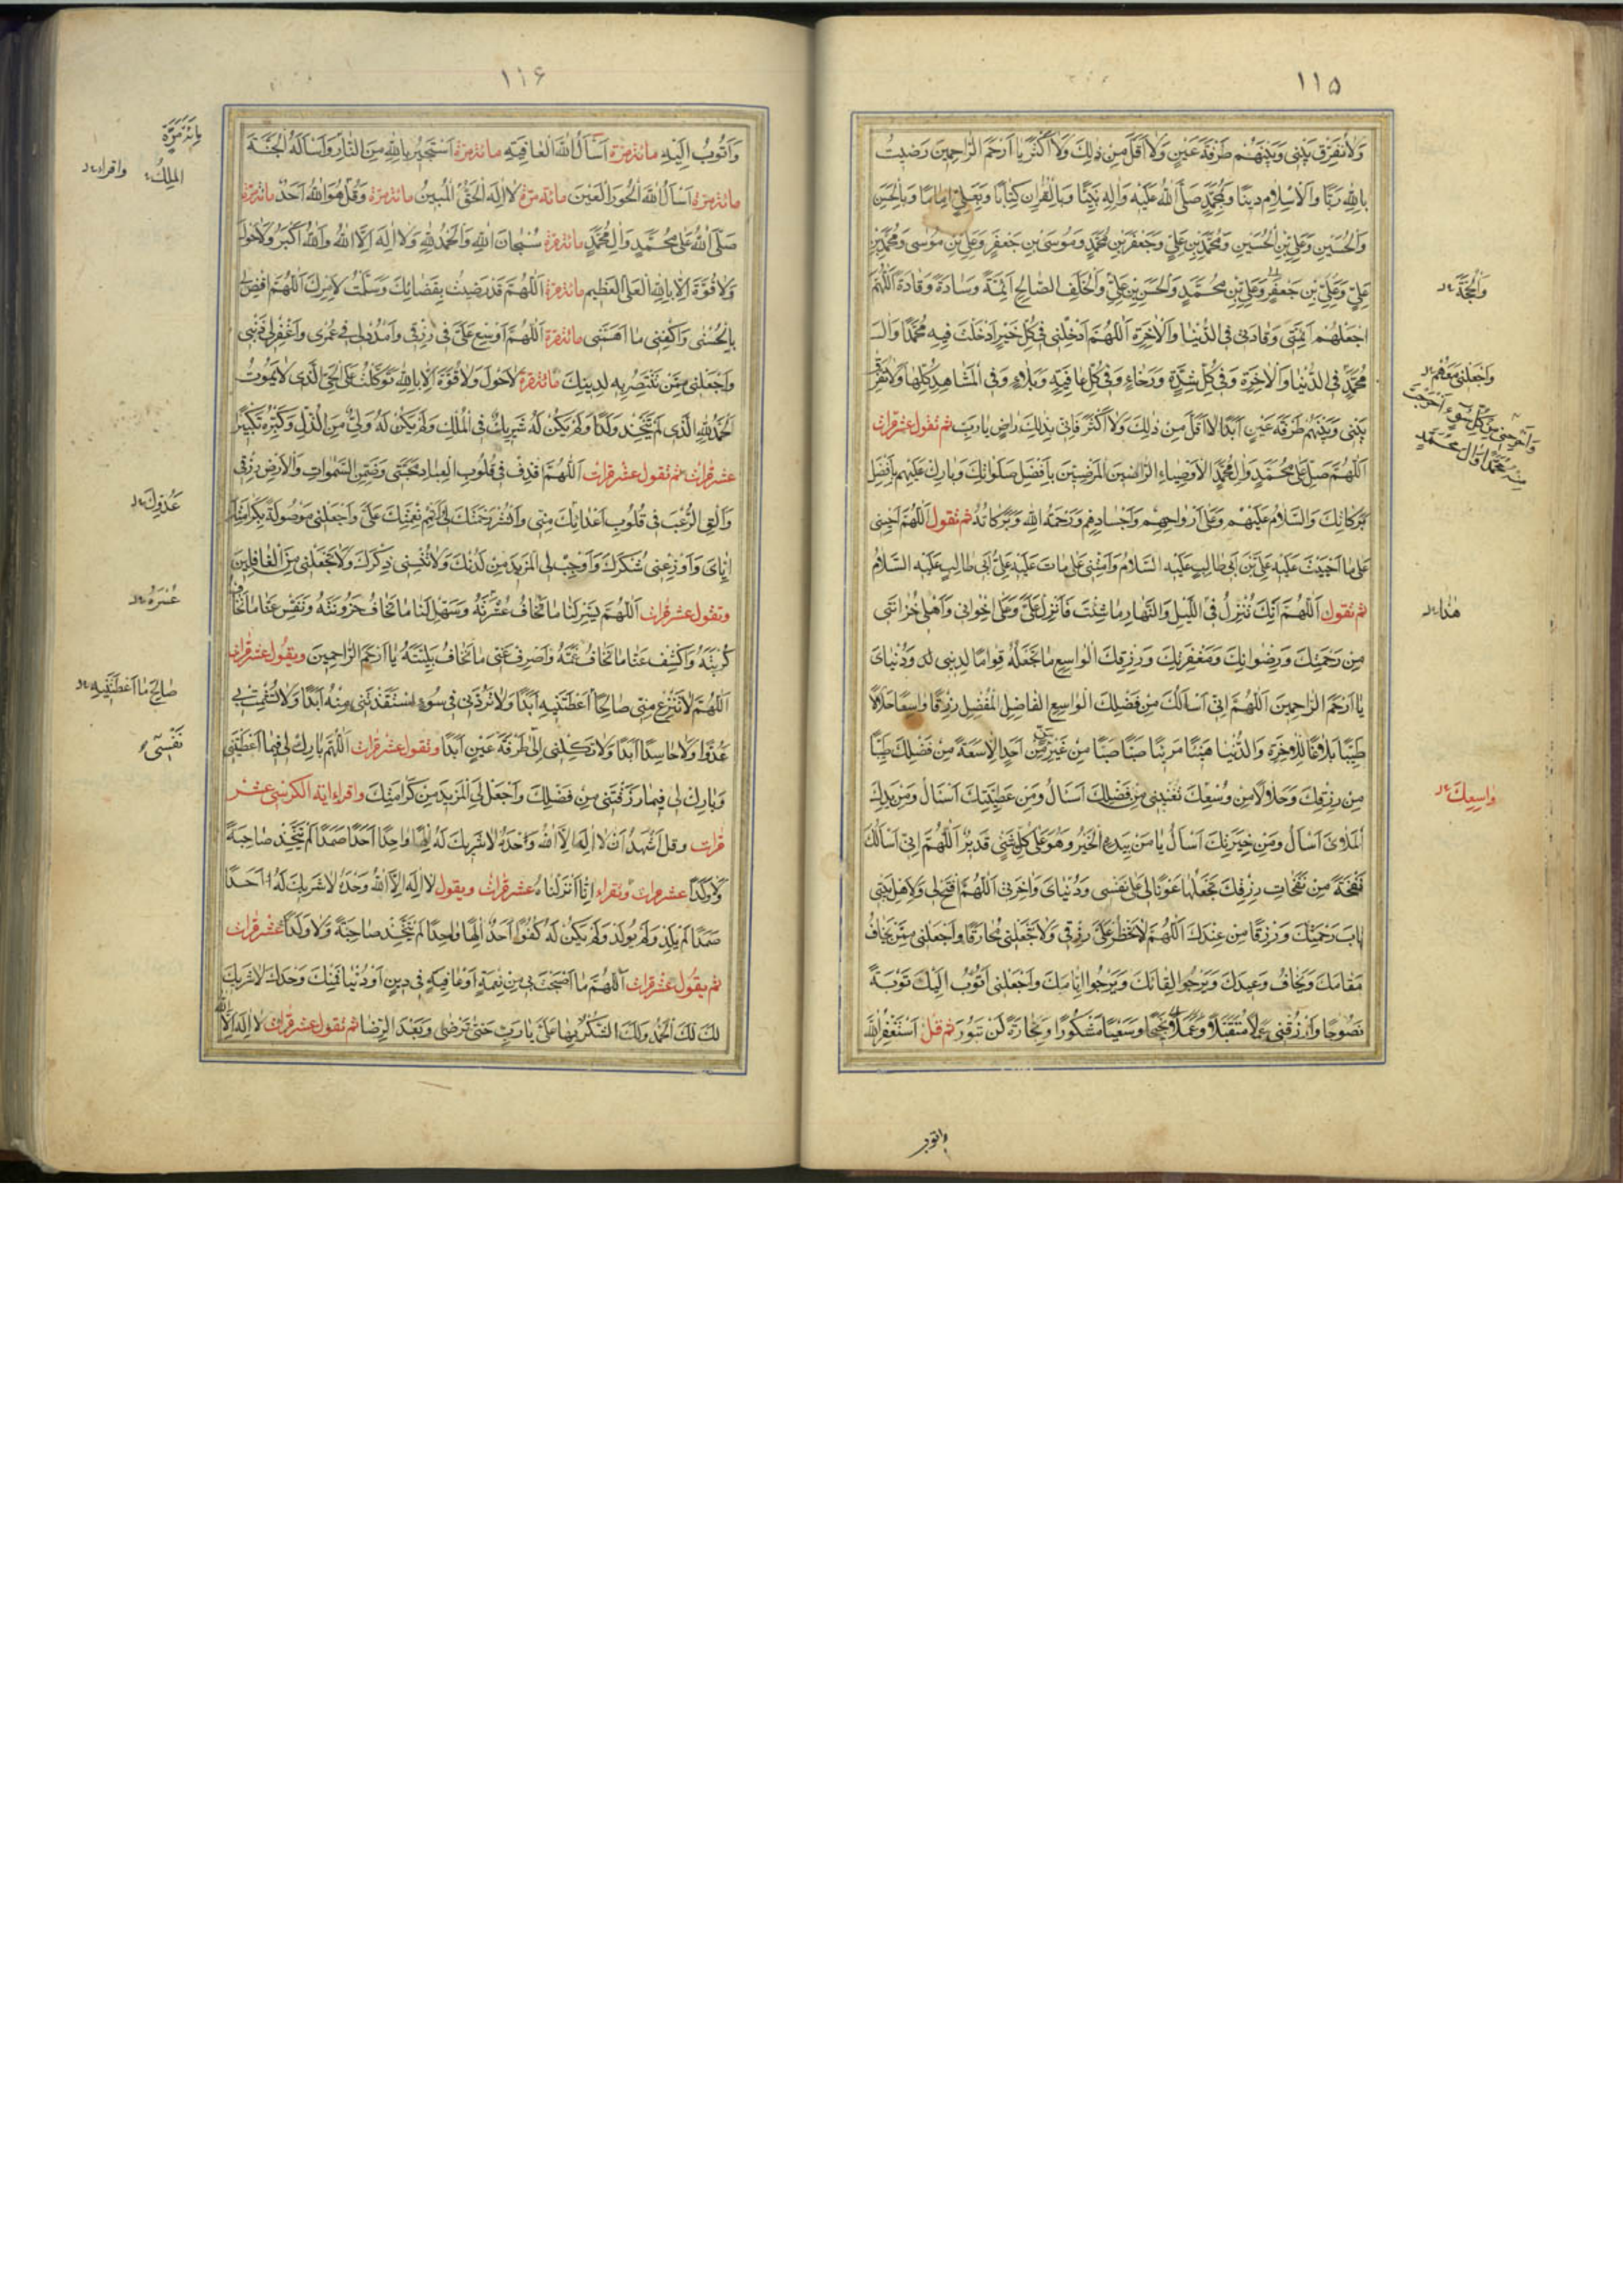 ١١٥
وَلَا تُفَرِّقْ بَيْنِي وَبَيْنَهُمْ طَرْفَةَ عَيْنٍ وَلَا أَقَلَّ مِنْ ذٰلِكَ وَلَا أَكْثَرَ يَا أَرْحَمَ الرَّاحِمِينَ رَضِيتُ
بِاللهِ رَبًّا وَالْاِسْلَامِ دِينًا وَبِمُحَمَّدٍ صَلَّى اللهُ عَلَيْهِ وَاٰلِهِ نَبِيًّا وَبِالْقُرْاٰنِ كِتَابًا وَبِعَلِيٍّ اِمَامًا وَبِالْحَسَنِ
وَالْحُسَيْنِ وَعَلِيِّ بْنِ الْحُسَيْنِ وَمُحَمَّدِ بْنِ عَلِيٍّ وَجَعْفَرِ بْنِ مُحَمَّدٍ وَمُوسَى بْنِ جَعْفَرٍ وَعَلِيِّ بْنِ مُوسٰى وَمُحَمَّدِ بْنِ
عَلِيٍّ وَعَلِيِّ بْنِ مُحَمَّدٍ وَالْحَسَنِ بْنِ عَلِيٍّ وَالْخَلَفِ الصَّالِحِ اَئِمَّةً وَسَادَةً وَقَادَةً اَللّٰهُمَّ
وَالْحُجَّةِ
اجْعَلْهُمْ اَئِمَّتِي وَقَادَتِي فِي الدُّنْيَا وَالْاٰخِرَةِ اَللّٰهُمَّ اَدْخِلْنِي فِي كُلِّ خَيْرٍ اَدْخَلْتَ فِيهِ مُحَمَّدًا وَاٰلَ
مُحَمَّدٍ فِي الدُّنْيَا وَالْاٰخِرَةِ وَفِي كُلِّ شِدَّةٍ وَرَخَاءٍ وَفِي كُلِّ عَافِيَةٍ وَبَلَاءٍ وَفِي الْمَشَاهِدِ كُلِّهَا وَلَا تُفَرِّقْ
وَاجْعَلْنِي مَعَهُمْ
وَاَخْرِجْنِي مِنْ كُلِّ سُوءٍ اَخْرَجْتَ
مِنْهُ مُحَمَّدًا وَاٰلَ مُحَمَّدٍ
بَيْنِي وَبَيْنَهُمْ طَرْفَةَ عَيْنٍ اَبَدًا لَا اَقَلَّ مِنْ ذٰلِكَ وَلَا اَكْثَرَ فَاِنِّي بِذٰلِكَ رَاضٍ يَا رَبِّ ثم تقول عشر مرات
اَللّٰهُمَّ صَلِّ عَلٰى مُحَمَّدٍ وَاٰلِ مُحَمَّدٍ الْاَوْصِيَاءِ الرَّاضِينَ الْمَرْضِيِّينَ بِاَفْضَلِ صَلَوَاتِكَ وَبَارِكْ عَلَيْهِمْ بِاَفْضَلِ
بَرَكَاتِكَ وَالسَّلَامُ عَلَيْهِمْ وَعَلٰى اَرْوَاحِهِمْ وَاَجْسَادِهِمْ وَرَحْمَةُ اللهِ وَبَرَكَاتُهُ ثم تقول اَللّٰهُمَّ اَحْيِنِي
عَلٰى مَا اَحْيَيْتَ عَلَيْهِ عَلِيَّ بْنَ اَبِي طَالِبٍ عَلَيْهِ السَّلَامُ وَاَمِتْنِي عَلٰى مَا مَاتَ عَلَيْهِ عَلِيُّ بْنُ اَبِي طَالِبٍ عَلَيْهِ السَّلَامُ
ثم تقول اَللّٰهُمَّ اِنَّكَ تُنْزِلُ فِي اللَّيْلِ وَالنَّهَارِ مَا شِئْتَ فَاَنْزِلْ عَلَيَّ وَعَلٰى اِخْوَانِي وَاَهْلِ حُزَانَتِي
هٰذَا
مِنْ رَحْمَتِكَ وَرِضْوَانِكَ وَمَغْفِرَتِكَ وَرِزْقِكَ الْوَاسِعِ مَا تَجْعَلُهُ قِوَامًا لِدِينِي وَدُنْيَايَ
يَا اَرْحَمَ الرَّاحِمِينَ اَللّٰهُمَّ اِنِّي اَسْاَلُكَ مِنْ فَضْلِكَ الْوَاسِعِ الْفَاضِلِ الْمُفْضِلِ رِزْقًا وَاسِعًا حَلَالًا
طَيِّبًا بَلَاغًا لِلْاٰخِرَةِ وَالدُّنْيَا هَنِيئًا مَرِيئًا صَبًّا صَبًّا مِنْ غَيْرِ مَنٍّ مِنْ اَحَدٍ اِلَّا سَعَةً مِنْ فَضْلِكَ طَيِّبًا
مِنْ رِزْقِكَ وَحَلَالًا مِنْ وُسْعِكَ تُغْنِينِي مِنْ فَضْلِكَ اَسْاَلُ وَمِنْ عَطِيَّتِكَ اَسْاَلُ وَمِنْ يَدِكَ
وَاسِعِكَ
الْمَلْاٰى اَسْاَلُ وَمِنْ خِيَرَتِكَ اَسْاَلُ يَا مَنْ بِيَدِهِ الْخَيْرُ وَهُوَ عَلٰى كُلِّ شَيْءٍ قَدِيرٌ اَللّٰهُمَّ اِنِّي اَسْاَلُكَ
نَفْحَةً مِنْ نَفَحَاتِ رِزْقِكَ تَجْعَلُهَا عَوْنًا لِي عَلٰى نَفْسِي وَدُنْيَايَ وَاٰخِرَتِي اَللّٰهُمَّ افْتَحْ لِي وَلِاَهْلِ بَيْتِي
بَابَ رَحْمَتِكَ وَرِزْقًا مِنْ عِنْدِكَ اَللّٰهُمَّ لَا تَحْظُرْ عَلَيَّ رِزْقِي وَلَا تَجْعَلْنِي مُحَارَفًا وَاجْعَلْنِي مِمَّنْ يَخَافُ
مَقَامَكَ وَيَخَافُ وَعِيدَكَ وَيَرْجُو لِقَائَكَ وَيَرْجُو اَيَّامَكَ وَاجْعَلْنِي اَتُوبُ اِلَيْكَ تَوْبَةً
نَصُوحًا وَارْزُقْنِي عَمَلًا مُتَقَبَّلًا وَعَمَلًا نَجِيحًا وَسَعْيًا مَشْكُورًا وَتِجَارَةً لَنْ تَبُورَ ثم قل اَسْتَغْفِرُ اللهَ
واتوب
١١۶
وَاَتُوبُ اِلَيْهِ مائة مرة اَسْاَلُ اللهَ الْعَافِيَةَ مائة مرة اَسْتَجِيرُ بِاللهِ مِنَ النَّارِ وَاَسْاَلُهُ الْجَنَّةَ
مِائَةَ مَرَّةٍ
مائة مرة اَسْاَلُ اللهَ الْحُورَ الْعِينَ مائة مرة لَا اِلٰهَ اِلَّا اللهُ الْحَقُّ الْمُبِينُ مائة مرة وَقُلْ هُوَ اللهُ اَحَدٌ مائة مرة
الْمَلِكُ واقراء
صَلَّى اللهُ عَلٰى مُحَمَّدٍ وَاٰلِ مُحَمَّدٍ مائة مرة سُبْحَانَ اللهِ وَالْحَمْدُ لِلّٰهِ وَلَا اِلٰهَ اِلَّا اللهُ وَاللهُ اَكْبَرُ وَلَا حَوْلَ
وَلَا قُوَّةَ اِلَّا بِاللهِ الْعَلِيِّ الْعَظِيمِ مائة مرة اَللّٰهُمَّ قَدْ رَضِيتُ بِقَضَائِكَ وَسَلَّمْتُ لِاَمْرِكَ اَللّٰهُمَّ اقْضِ لِي
بِالْحُسْنٰى وَاكْفِنِي مَا اَهَمَّنِي مائة مرة اَللّٰهُمَّ اَوْسِعْ عَلَيَّ فِي رِزْقِي وَامْدُدْ لِي فِي عُمْرِي وَاغْفِرْ لِي ذَنْبِي
وَاجْعَلْنِي مِمَّنْ تَنْتَصِرُ بِهِ لِدِينِكَ مائة مرة لَا حَوْلَ وَلَا قُوَّةَ اِلَّا بِاللهِ تَوَكَّلْتُ عَلَى الْحَيِّ الَّذِي لَا يَمُوتُ
الْحَمْدُ لِلّٰهِ الَّذِي لَمْ يَتَّخِذْ وَلَدًا وَلَمْ يَكُنْ لَهُ شَرِيكٌ فِي الْمُلْكِ وَلَمْ يَكُنْ لَهُ وَلِيٌّ مِنَ الذُّلِّ وَكَبِّرْهُ تَكْبِيرًا
عشر مرات ثم تقول عشر مرات اَللّٰهُمَّ اقْذِفْ فِي قُلُوبِ الْعِبَادِ مَحَبَّتِي وَضَمِّنِ السَّمٰوَاتِ وَالْاَرْضَ رِزْقِي
وَاَلْقِ الرُّعْبَ فِي قُلُوبِ اَعْدَائِكَ مِنِّي وَانْشُرْ رَحْمَتَكَ لِي وَاَتْمِمْ نِعْمَتَكَ عَلَيَّ وَاجْعَلْهَا مَوْصُولَةً بِكَرَامَتِكَ
عَدُوِّكَ
اِيَّايَ وَاَوْزِعْنِي شُكْرَكَ وَاَوْجِبْ لِيَ الْمَزِيدَ مِنْ لَدُنْكَ وَلَا تُنْسِنِي ذِكْرَكَ وَلَا تَجْعَلْنِي مِنَ الْغَافِلِينَ
وتقول عشر مرات اَللّٰهُمَّ يَسِّرْ لَنَا مَا نَخَافُ عُسْرَتَهُ وَسَهِّلْ لَنَا مَا نَخَافُ حُزُونَتَهُ وَنَفِّسْ عَنَّا مَا نَخَافُ
عُسْرَهُ
كُرْبَتَهُ وَاكْشِفْ عَنَّا مَا نَخَافُ غَمَّهُ وَاصْرِفْ عَنِّي مَا نَخَافُ بَلِيَّتَهُ يَا اَرْحَمَ الرَّاحِمِينَ ويقول عشر مرات
اَللّٰهُمَّ لَا تَنْزِعْ مِنِّي صَالِحًا اَعْطَيْتَنِيهِ اَبَدًا وَلَا تَرُدَّنِي فِي سُوءٍ اسْتَنْقَذْتَنِي مِنْهُ اَبَدًا وَلَا تُشْمِتْ بِي
صَالِحَ مَا اَعْطَيْتَنِيهِ
عَدُوًّا وَلَا حَاسِدًا اَبَدًا وَلَا تَكِلْنِي اِلٰى طَرْفَةَ عَيْنٍ اَبَدًا وتقول عشر مرات اَللّٰهُمَّ بَارِكْ لِي فِيمَا اَعْطَيْتَنِي
نَفْسِي
وَبَارِكْ لِي فِيمَا رَزَقْتَنِي مِنْ فَضْلِكَ وَاجْعَلْ لِيَ الْمَزِيدَ مِنْ كَرَامَتِكَ واقراء اية الكرسي عشر
مرات وقل اَشْهَدُ اَنْ لَا اِلٰهَ اِلَّا اللهُ وَحْدَهُ لَا شَرِيكَ لَهُ اِلٰهًا وَاحِدًا اَحَدًا صَمَدًا لَمْ يَتَّخِذْ صَاحِبَةً
وَلَا وَلَدًا عشر مرات وتقراء اِنَّا اَنْزَلْنَاهُ عشر مرات ويقول لَا اِلٰهَ اِلَّا اللهُ وَحْدَهُ لَا شَرِيكَ لَهُ اَحَدًا
صَمَدًا لَمْ يَلِدْ وَلَمْ يُولَدْ وَلَمْ يَكُنْ لَهُ كُفُوًا اَحَدٌ اِلٰهًا وَاحِدًا لَمْ يَتَّخِذْ صَاحِبَةً وَلَا وَلَدًا عشر مرات
ثم يقول عشر مرات اَللّٰهُمَّ مَا اَصْبَحَتْ بِي مِنْ نِعْمَةٍ اَوْ عَافِيَةٍ فِي دِينٍ اَوْ دُنْيَا فَمِنْكَ وَحْدَكَ لَا شَرِيكَ
لَكَ لَكَ الْحَمْدُ وَلَكَ الشُّكْرُ بِهَا عَلَيَّ يَا رَبِّ حَتّٰى تَرْضٰى وَبَعْدَ الرِّضَا ثم تقول عشر مرات لَا اِلٰهَ اِلَّا اللهُ